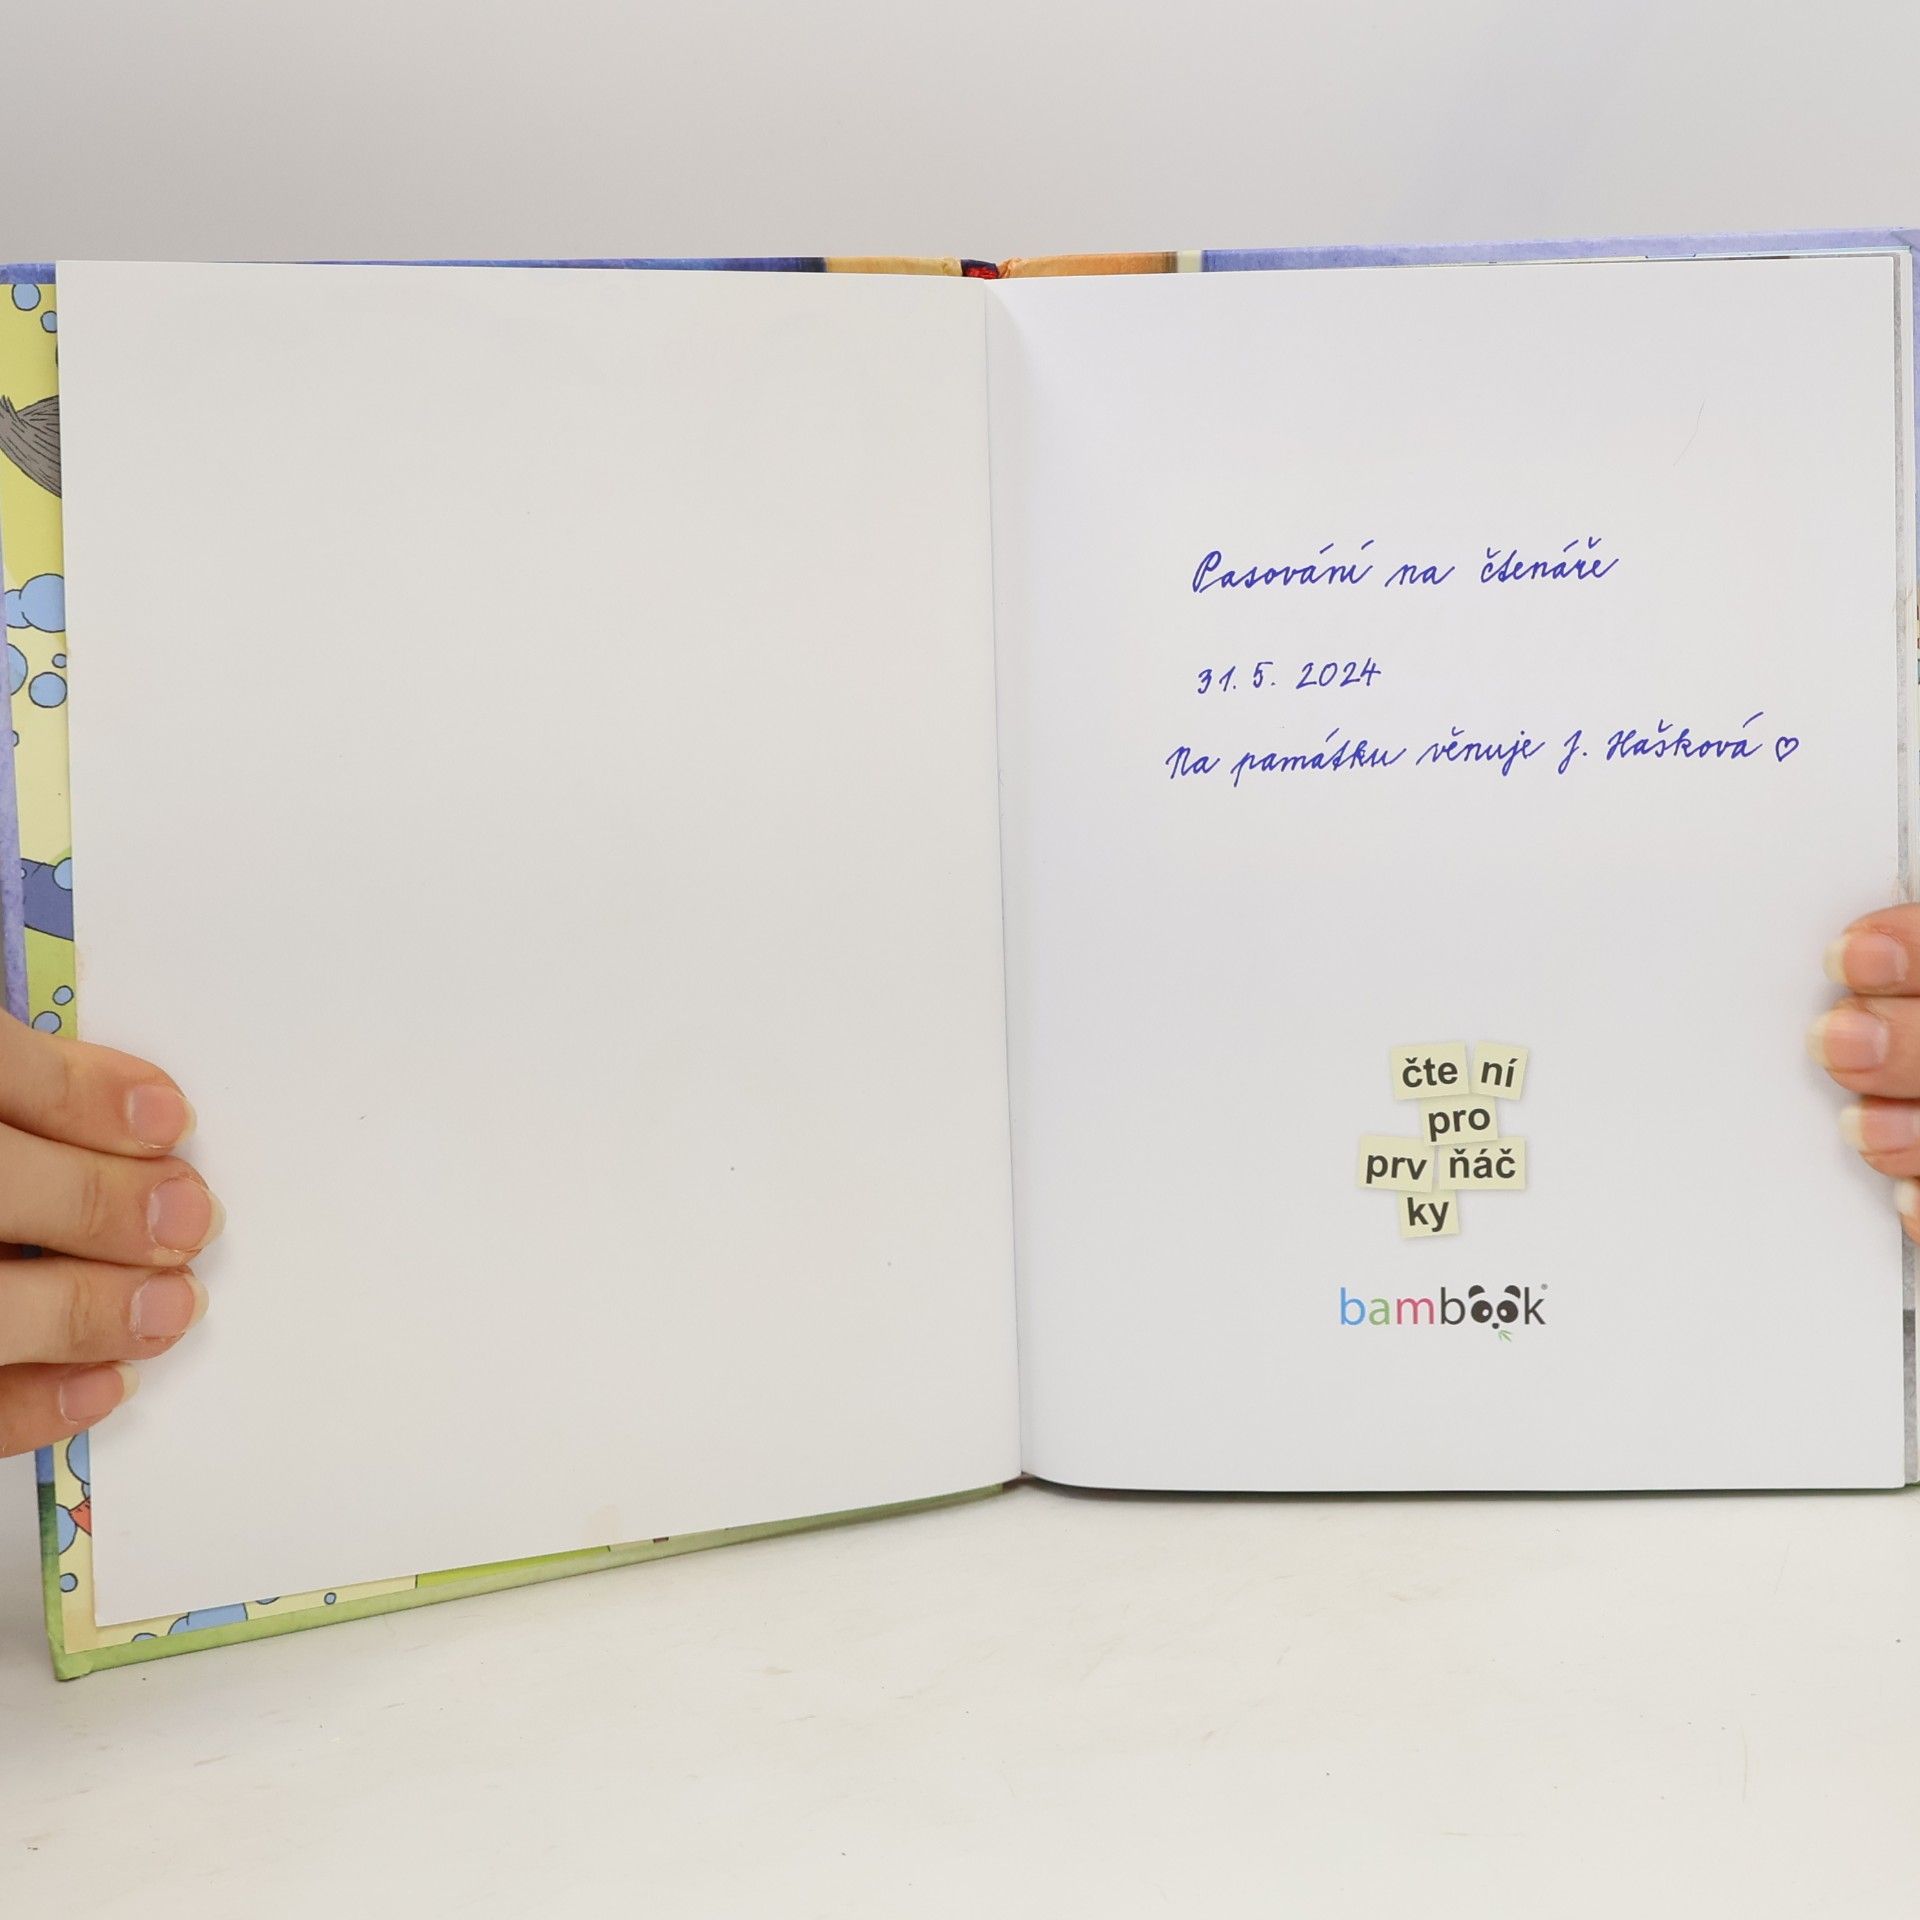 Pasování na čtenáře
31. 5. 2024
Na památku věnuje J. Hašková ♡
čte ní
pro
prv ňáč
ky
bambook®